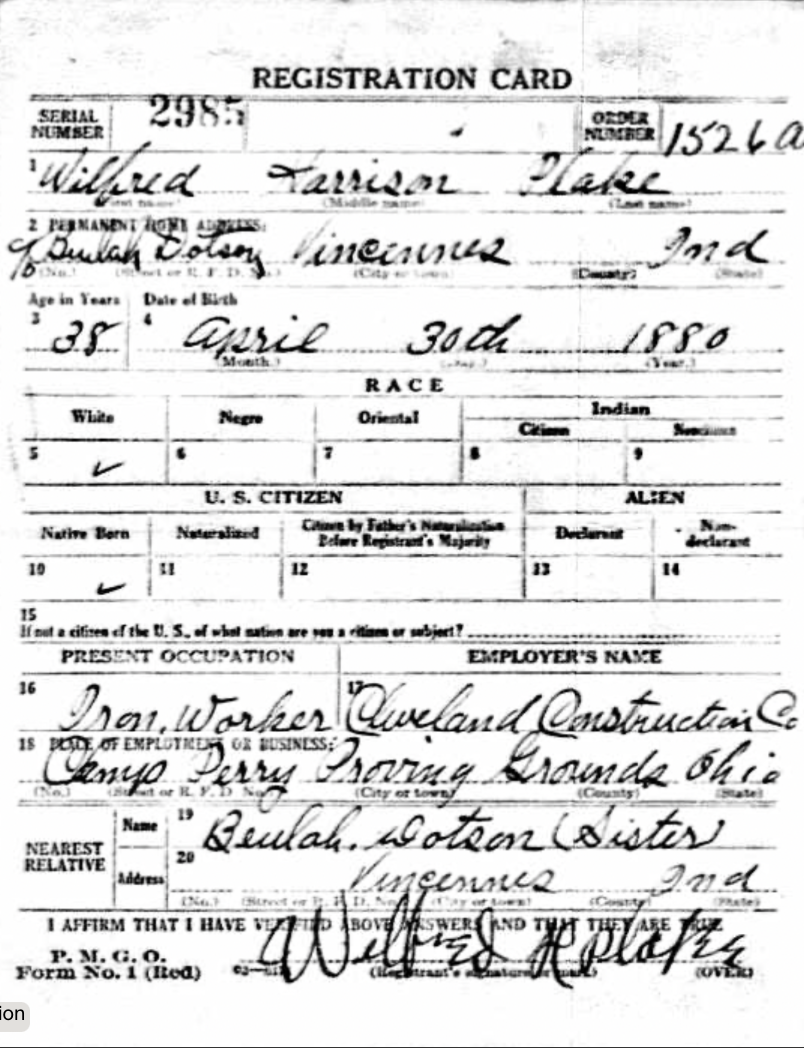 REGISTRATION CARD
SERIAL NUMBER 2985 ORDER NUMBER 1526 a
1 Wilfred Harrison Plake
(First name) (Middle name) (Last name)
2 PERMANENT HOME ADDRESS:
% Beulah Dotson Vincennes Ind
(No.) (Street or R. F. D. No.) (City or town) (County) (State)
Age in Years Date of Birth
3 38 4 April 30th 1880
(Month.) (Day.) (Year.)
RACE
White Negro Oriental Indian
Citizen Noncitizen
5 ✓ 6 7 8 9
U. S. CITIZEN ALIEN
Native Born Naturalized Citizen by Father's Naturalization Before Registrant's Majority Declarant Non-declarant
10 ✓ 11 12 13 14
15
If not a citizen of the U. S., of what nation are you a citizen or subject?
PRESENT OCCUPATION EMPLOYER'S NAME
16 Iron. Worker 17 Cleveland Construction Co
18 PLACE OF EMPLOYMENT OR BUSINESS:
Camp Perry Proving Grounds Ohio
(No.) (Street or R. F. D. No.) (City or town) (County) (State)
NEAREST RELATIVE Name 19 Beulah. Dotson (Sister)
Address 20 Vincennes Ind
(No.) (Street or R. F. D. No.) (City or town) (County) (State)
I AFFIRM THAT I HAVE VERIFIED ABOVE ANSWERS AND THAT THEY ARE TRUE
P. M. G. O.
Form No. 1 (Red) Wilfred H Plake
(Registrant's signature or mark) (OVER)
ion